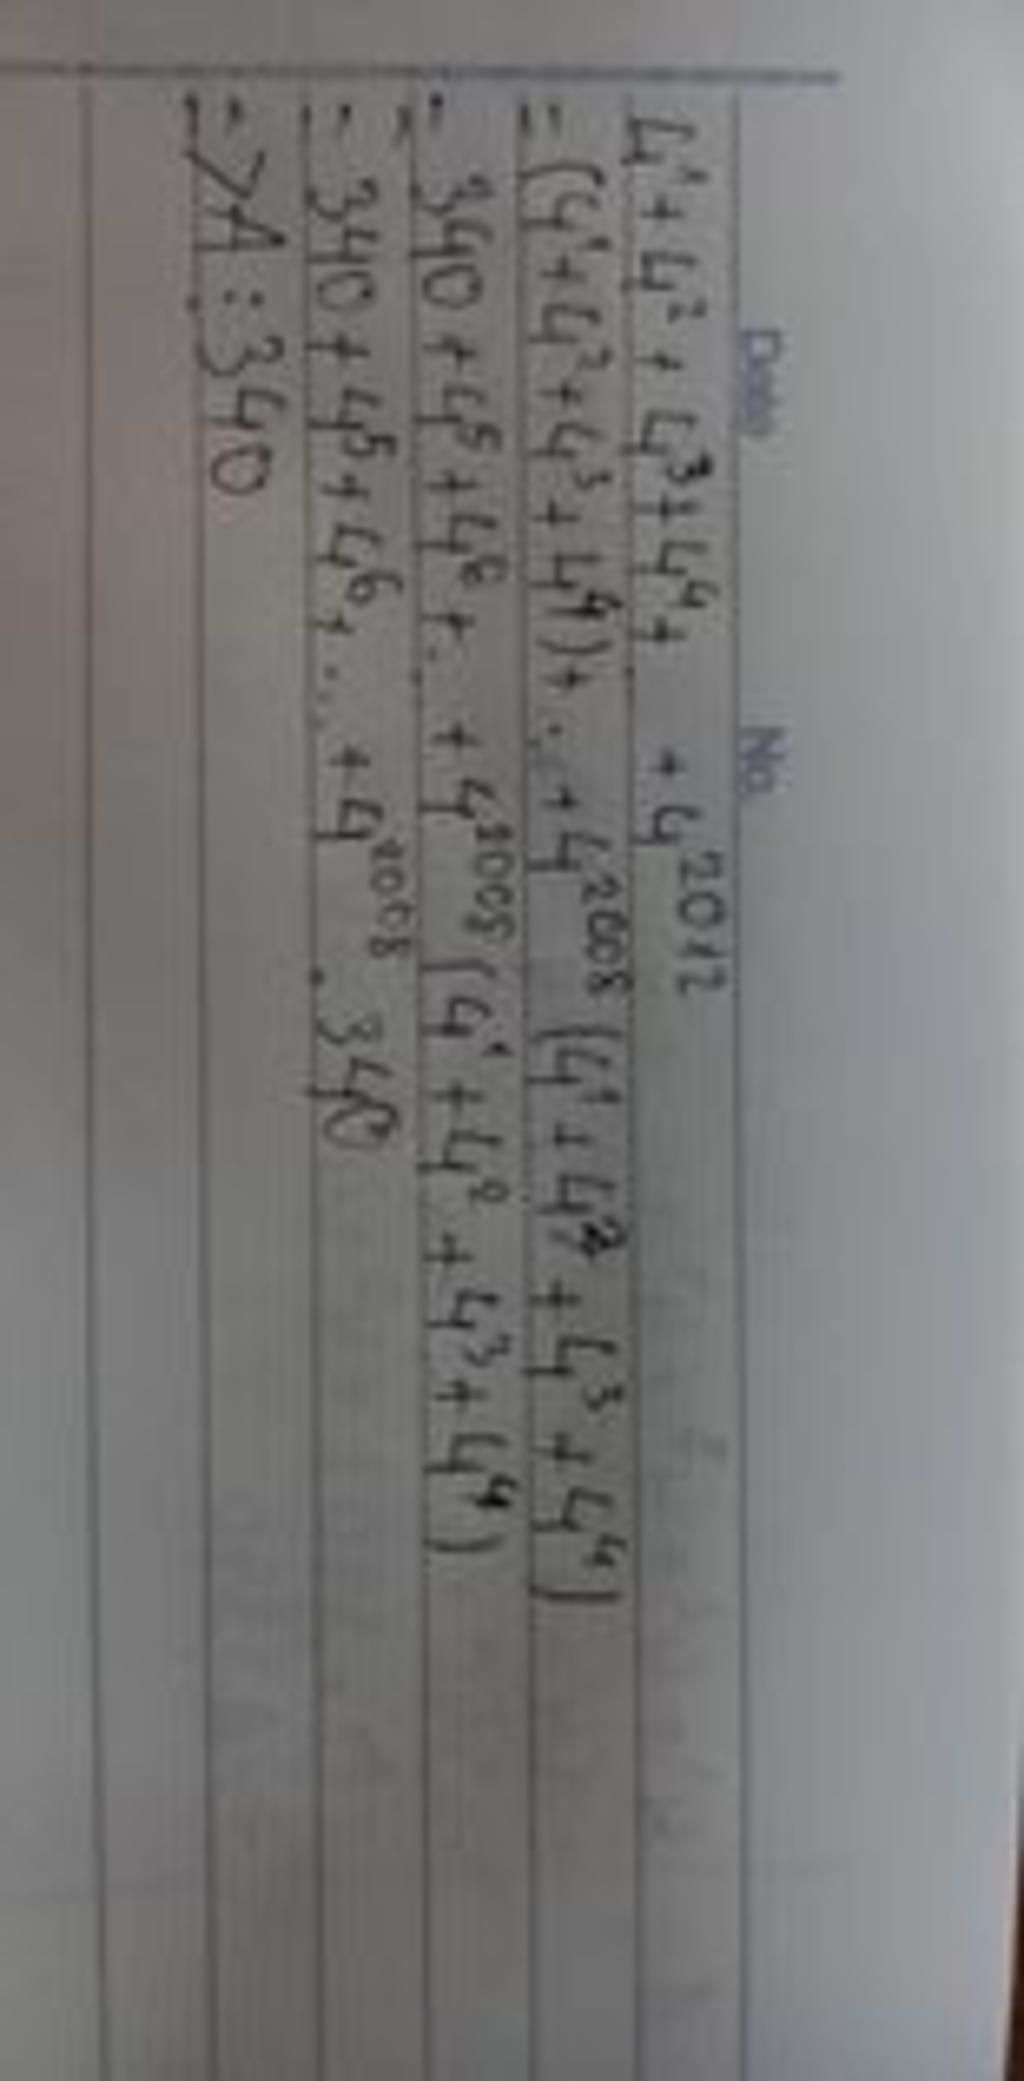 Date No.
4¹ + 4² + 4³ + 4⁴ + + 4²⁰¹²
= (4¹ + 4² + 4³ + 4⁴) + ... + 4²⁰⁰⁸ (4¹ + 4² + 4³ + 4⁴)
= 340 + 4⁵ + 4⁸ + ... + 4²⁰⁰⁸ (4¹ + 4² + 4³ + 4⁴)
= 340 + 4⁵ + 4⁶ + ... + 4²⁰⁰⁸ . 340
=> A ⋮ 340